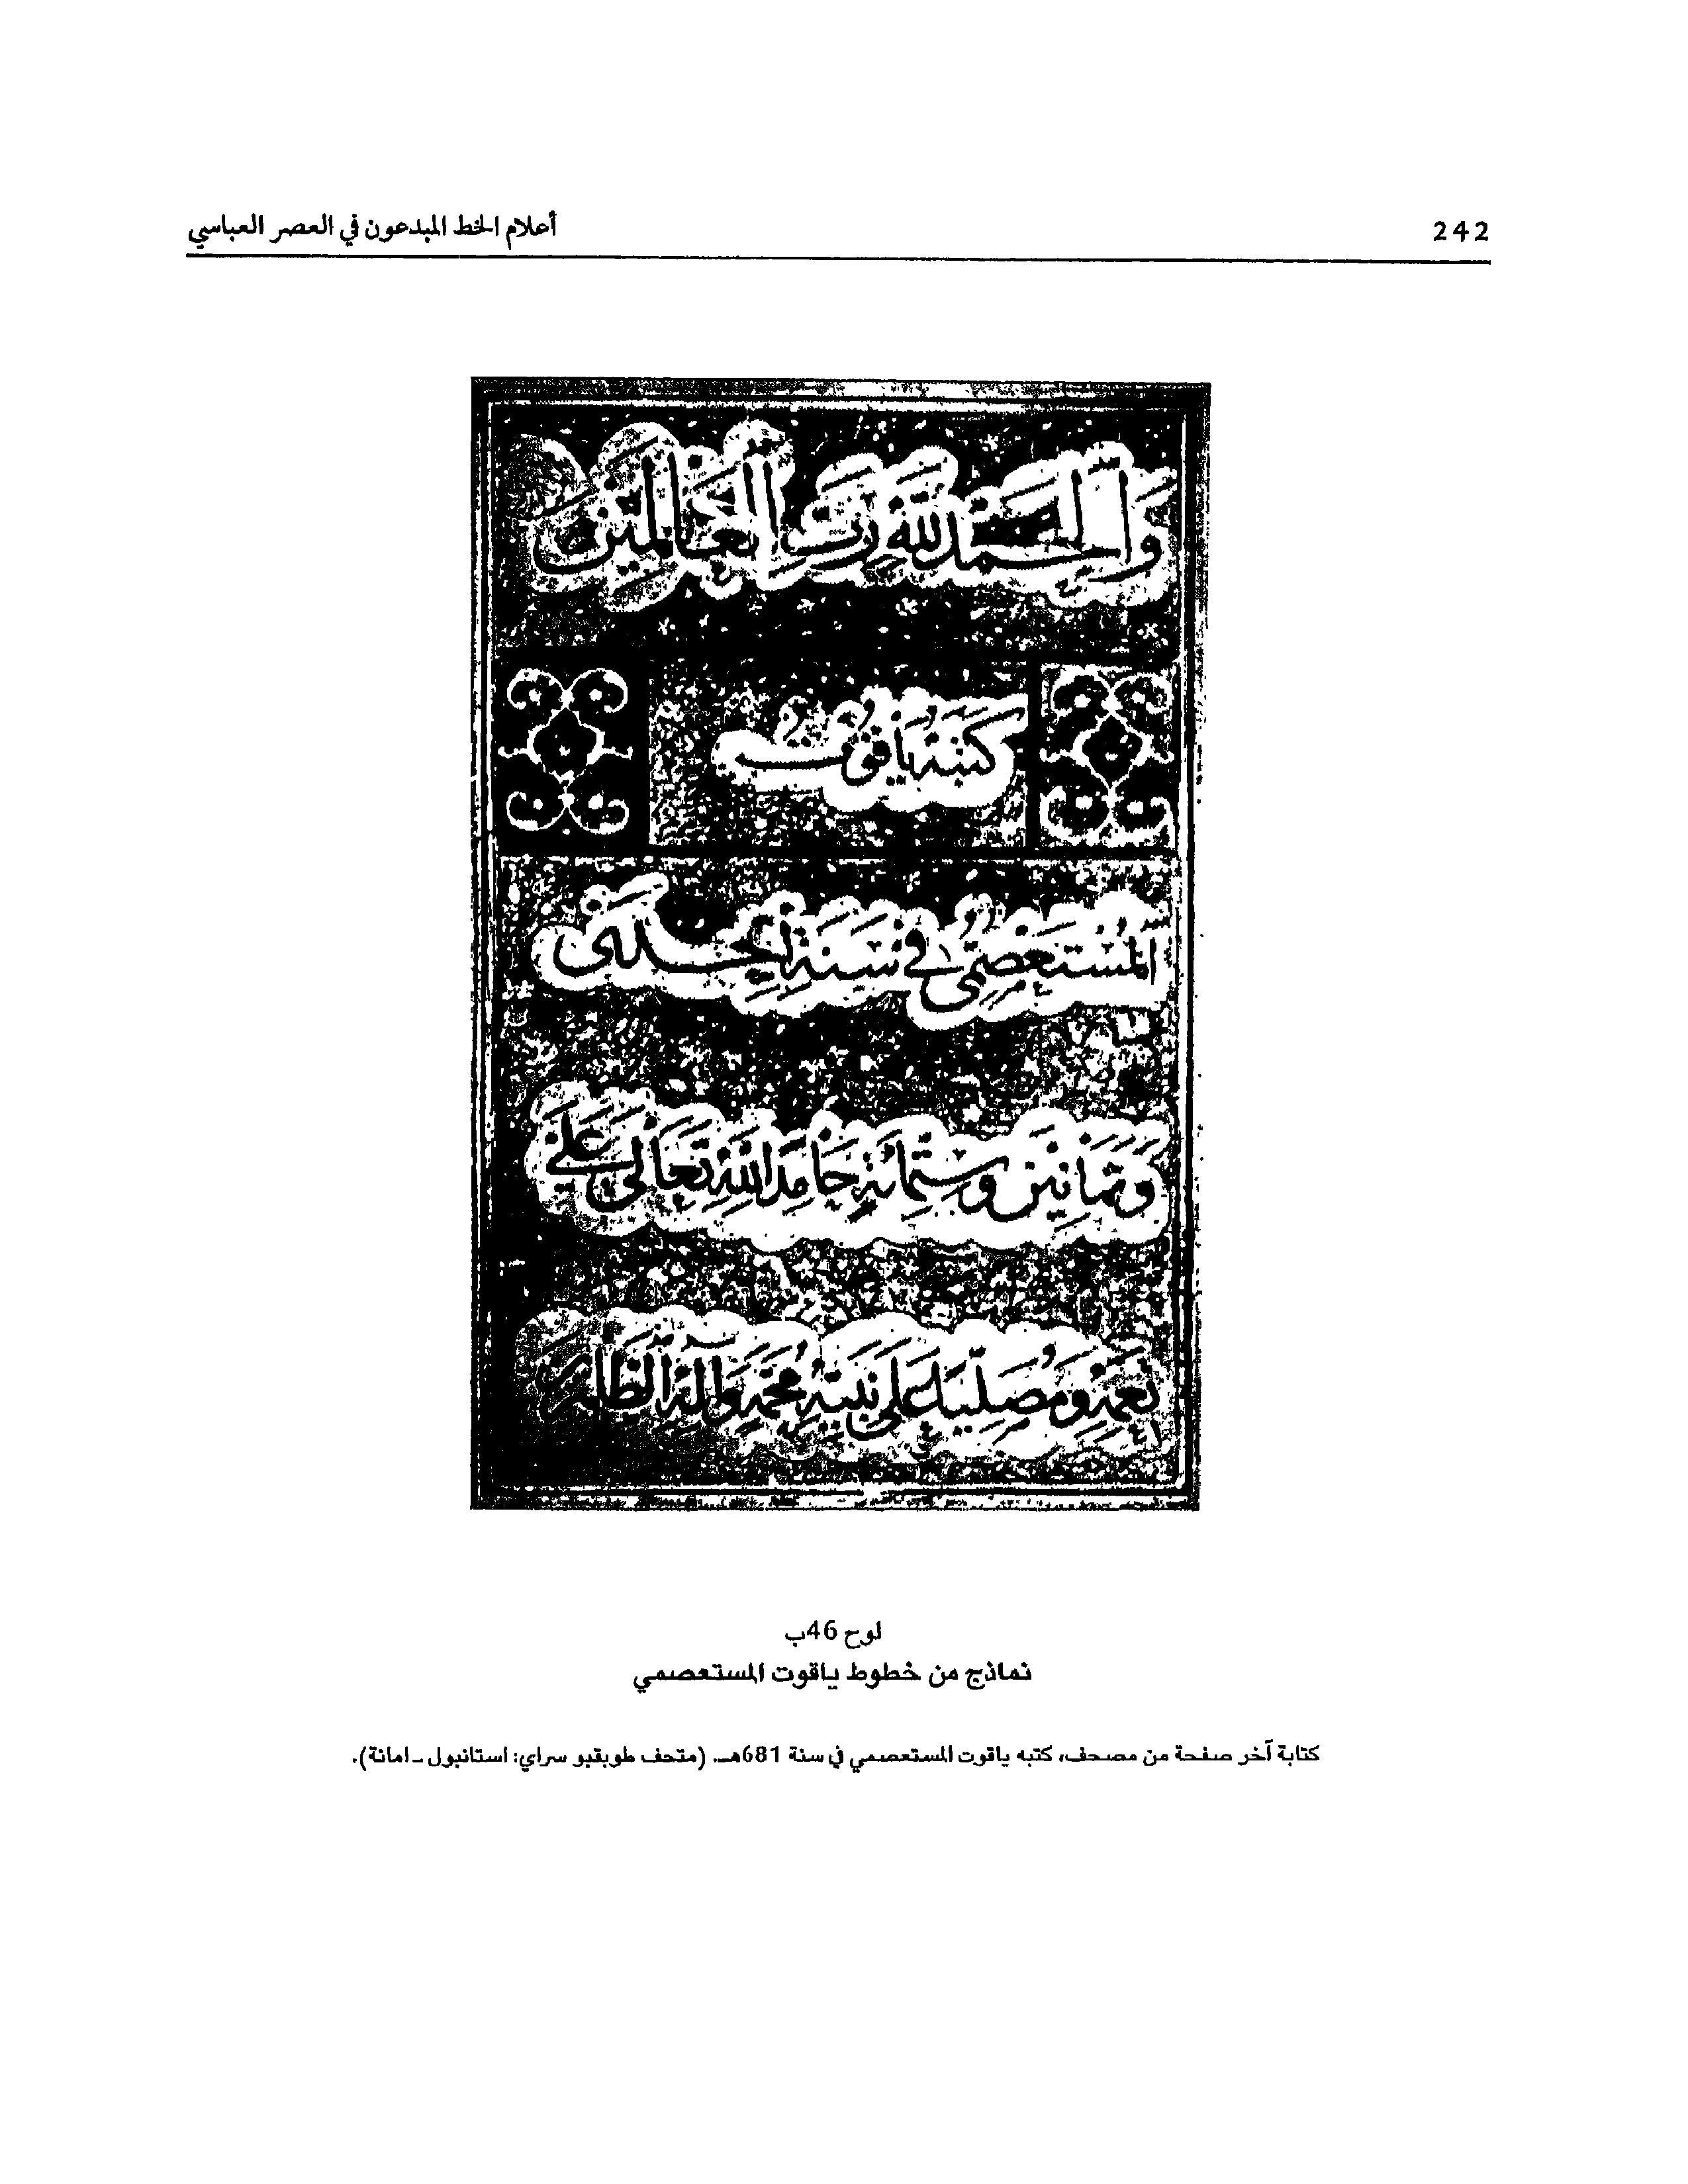 أعلام الخط المبدعون في العصر العباسي
242
وَالْحَمْدُ لِلَّهِ رَبِّ الْعَالَمِينَ
كَتَبَهُ يَاقُوتُ
الْمُسْتَعْصِمِيُّ فِي سَنَةِ إِحْدَى
وَثَمَانِينَ وَسِتِّمِائَةٍ حَامِدًا لِلَّهِ تَعَالَى عَلَى
نِعَمِهِ وَمُصَلِّيًا عَلَى نَبِيِّهِ مُحَمَّدٍ وَآلِهِ
لوح 46ب
نماذج من خطوط ياقوت المستعصمي
كتابة آخر صفحة من مصحف، كتبه ياقوت المستعصمي في سنة 681هـ. (متحف طوبقبو سراي: استانبول ـ امانة).